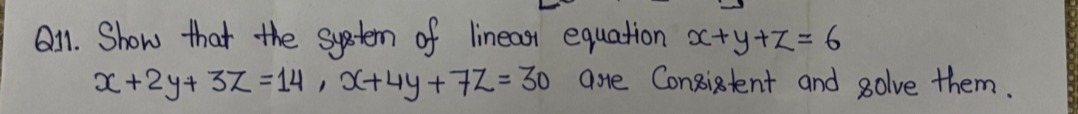 Q11. Show that the system of linear equation x+y+z=6
x+2y+3z=14, x+4y+7z=30 are Consistent and solve them.